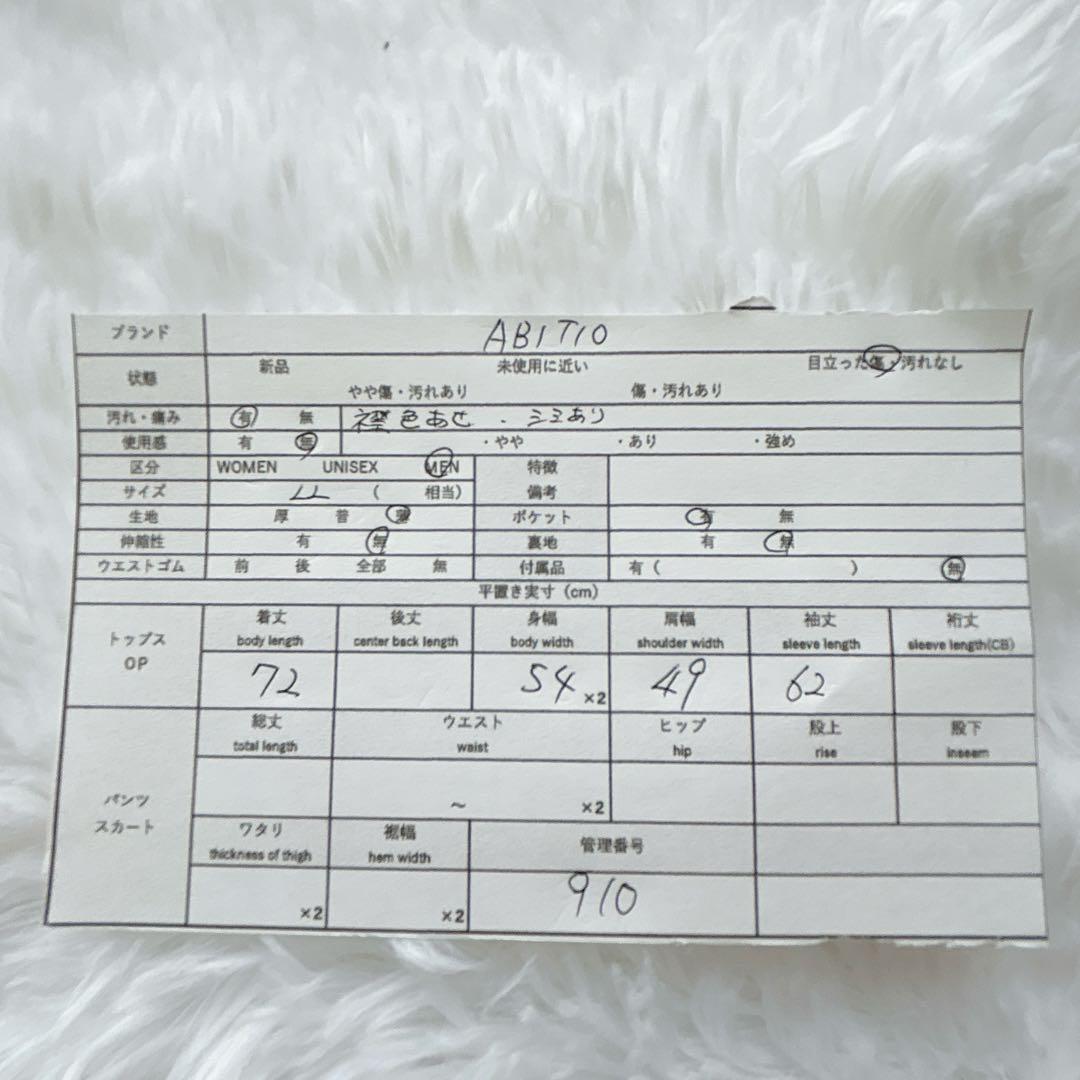 ブランド ABITIO
状態 新品 未使用に近い 目立った傷・汚れなし
やや傷・汚れあり 傷・汚れあり
汚れ・痛み 有 無 襟色あせ・シミあり
使用感 有 無 ・やや ・あり ・強め
区分 WOMEN UNISEX MEN 特徴
サイズ LL ( 相当) 備考
生地 厚 普 薄 ポケット 有 無
伸縮性 有 無 裏地 有 無
ウエストゴム 前 後 全部 無 付属品 有 ( ) 無
平置き実寸 (cm)
トップス OP
着丈 後丈 身幅 肩幅 袖丈 裄丈
body length center back length body width shoulder width sleeve length sleeve length(CB)
72 54 ×2 49 62
パンツ スカート
総丈 ウエスト ヒップ 股上 股下
total length waist hip rise inseem
~ ×2
ワタリ 裾幅 管理番号
thickness of thigh hem width
×2 ×2 910